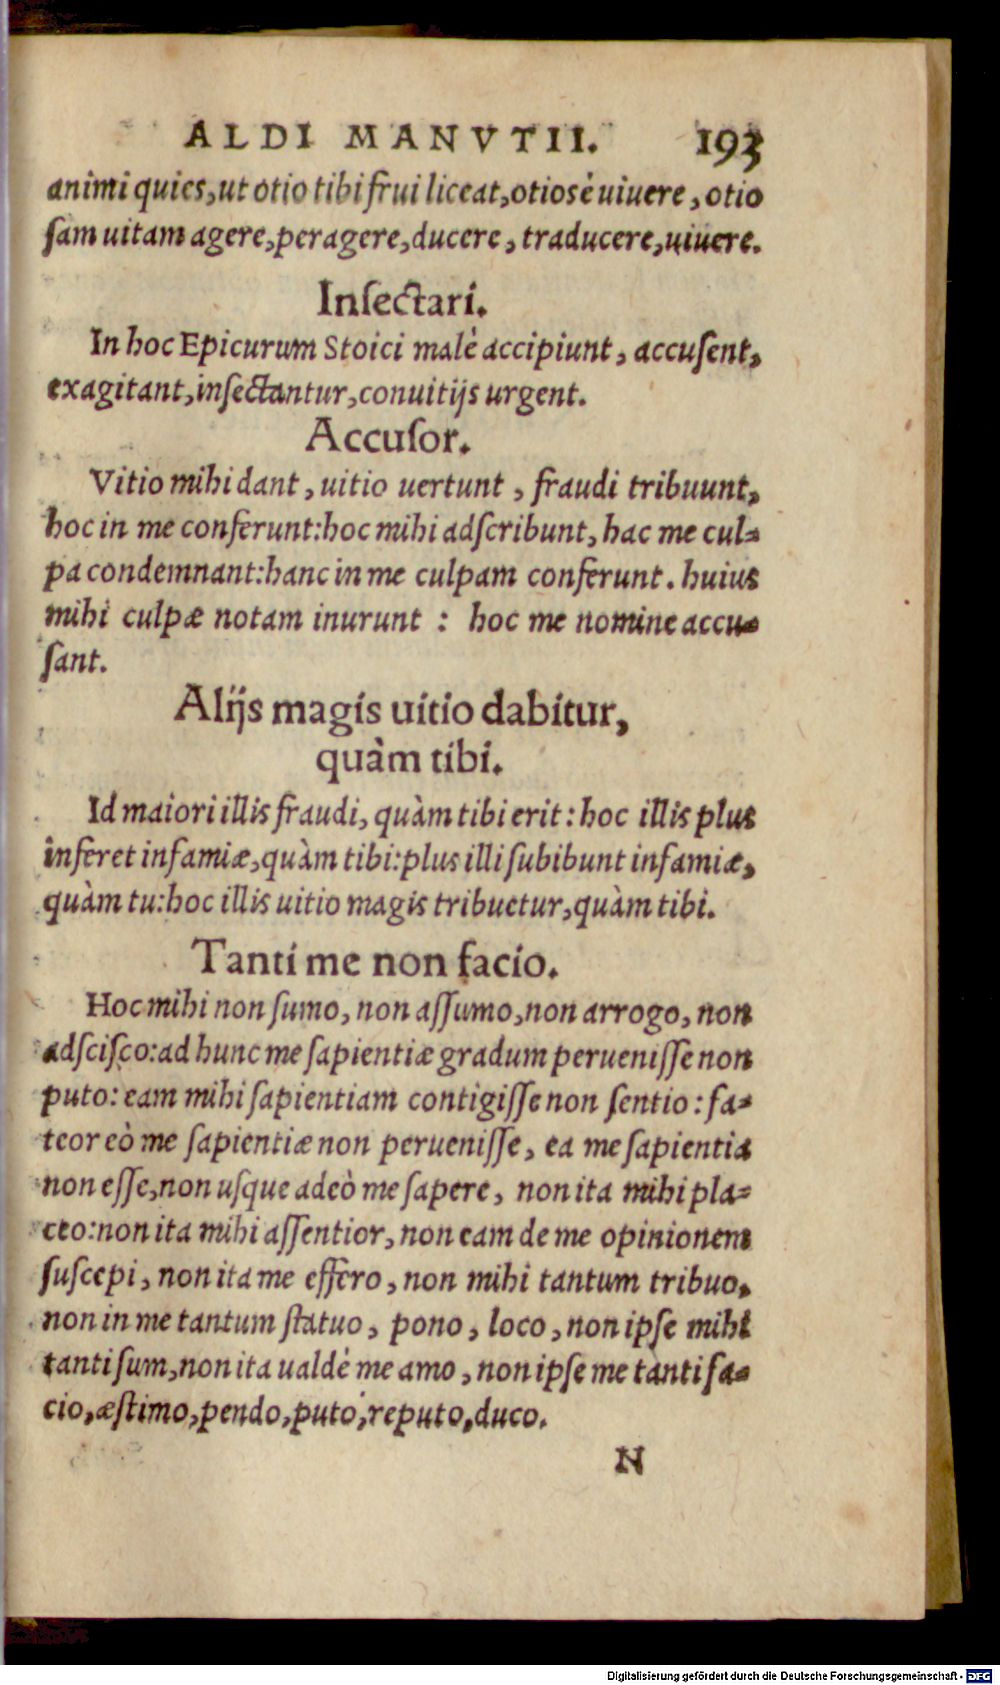 ALDI MANVTII. 193
animi quies, ut otio tibi frui liceat, otiosè uiuere, otio
ſam uitam agere, peragere, ducere, traducere, uiuere.
Inſectari.
In hoc Epicurum Stoici malè accipiunt, accuſent,
exagitant, inſectantur, conuitijs urgent.
Accuſor.
Vitio mihi dant, uitio uertunt, fraudi tribuunt,
hoc in me conferunt: hoc mihi adſcribunt, hac me cul-
pa condemnant: hanc in me culpam conferunt. huius
mihi culpæ notam inurunt : hoc me nomine accu-
ſant.
Alijs magis uitio dabitur,
quàm tibi.
Id maiori illis fraudi, quàm tibi erit: hoc illis plus
inferet infamiæ, quàm tibi: plus illi ſubibunt infamiæ,
quàm tu: hoc illis uitio magis tribuetur, quàm tibi.
Tanti me non facio.
Hoc mihi non ſumo, non aſſumo, non arrogo, non
adſciſco: ad hunc me ſapientiæ gradum perueniſſe non
puto: eam mihi ſapientiam contigiſſe non ſentio: fa-
teor eò me ſapientiæ non perueniſſe, ea me ſapientia
non eſſe, non uſque adeò me ſapere, non ita mihi pla-
ceo: non ita mihi aſſentior, non eam de me opinionem
ſuſcepi, non ita me effero, non mihi tantum tribuo,
non in me tantum ſtatuo, pono, loco, non ipſe mihi
tanti ſum, non ita ualdè me amo, non ipſe me tanti fa-
cio, æſtimo, pendo, puto, reputo, duco.
N
Digitalisierung gefördert durch die Deutsche Forschungsgemeinschaft - DFG